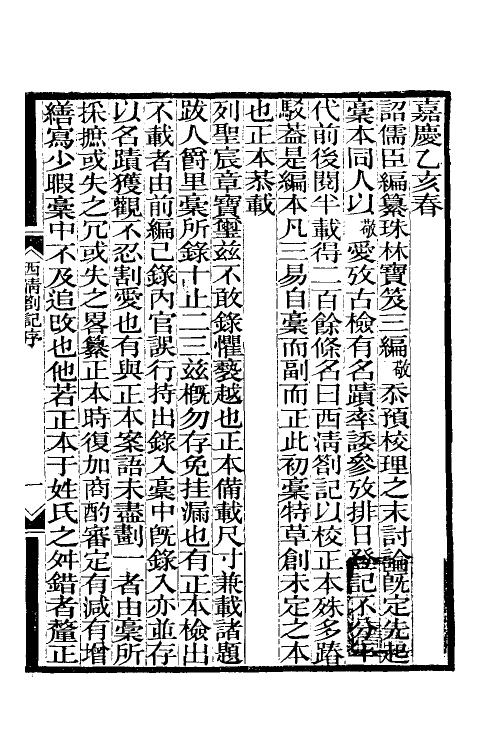 嘉慶乙亥春
詔儒臣編纂珠林寶笈三編敬忝預校理之末討論旣定先起
稾本同人以敬愛攷古檢有名蹟率諉參攷排日登記不分年
代前後閱半載得二百餘條名曰西清劄記以校正本殊多踳
駁葢是編本凡三易自稾而副而正此初稾特草創未定之本
也正本恭載
列聖宸章寶璽兹不敢錄懼褻越也正本備載尺寸兼載諸題
跋人爵里稾所錄十止二三兹概勿存免挂漏也有正本檢出
不載者由前編已錄內官誤行持出錄入稾中旣錄入亦並存
以名蹟獲觀不忍割愛也有與正本案語未盡劃一者由稾所
採摭或失之冗或失之畧纂正本時復加商酌審定有減有增
繕寫少暇稾中不及追改也他若正本于姓氏之舛錯者釐正
西清劄記序
一